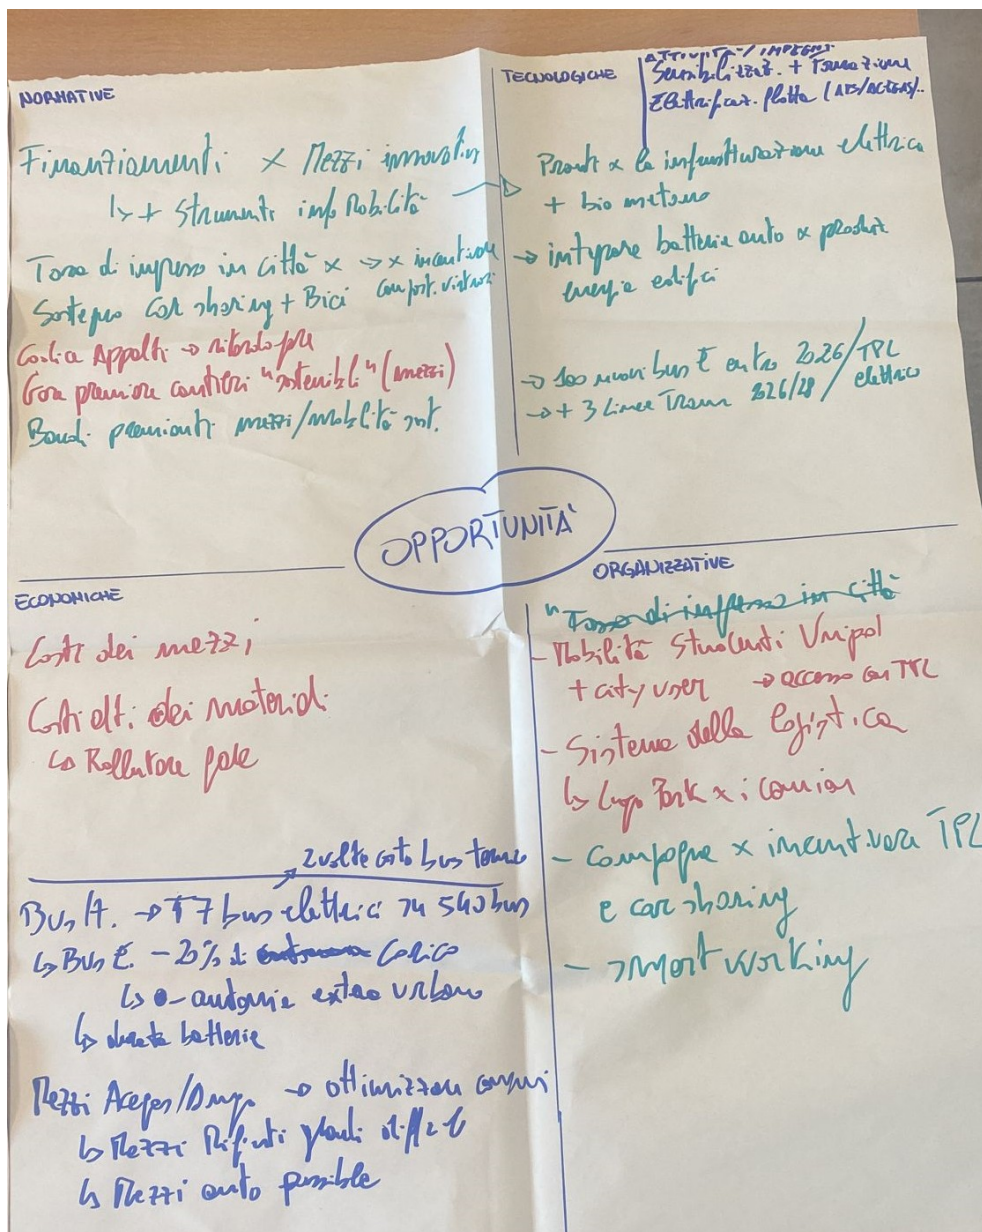 NORMATIVE
Finanziamenti x Mezzi innovativi
↳ + Strumenti info Mobilità
Tassa di ingresso in città x → x incentivare
Sostegno Car sharing + Bici comport. virtuosi
Codice Appalti →
Gare premiare cantieri "sostenibili" (mezzi)
Bandi premianti mezzi/mobilità sost.
TECNOLOGICHE
ATTIVITÀ / IMPEGNI
Sensibilizzaz. + Formazione
Elettrificaz. flotta (APS/ACEGAS/..
Pronti x la infrastrutturazione elettrica
+ bio metano
→ integrare batterie auto x produrre
energia edifici
→ 100 nuovi bus E entro 2026/TPL
→ + 3 Linee Tram 2026/28 / elettrico
OPPORTUNITÀ
ECONOMICHE
Costi dei mezzi
Costi alti dei materiali
↳
2 volte costo bus
Bus It. → 77 bus elettrici su 540 bus
↳ Bus E. - 20% di carico
↳ - autonomia extra urbano
↳ durata batterie
Mezzi Acegas/ → ottimizzare consumi
↳ Mezzi Rifiuti
↳ Mezzi auto possibile
ORGANIZZATIVE
" Tassa di ingresso in città
- Mobilità Studenti Unipd
+ city user → accesso con TPL
- Sistema della logistica
↳ Park x i camion
- Campagne x incentivare TPL
e car sharing
- smart working